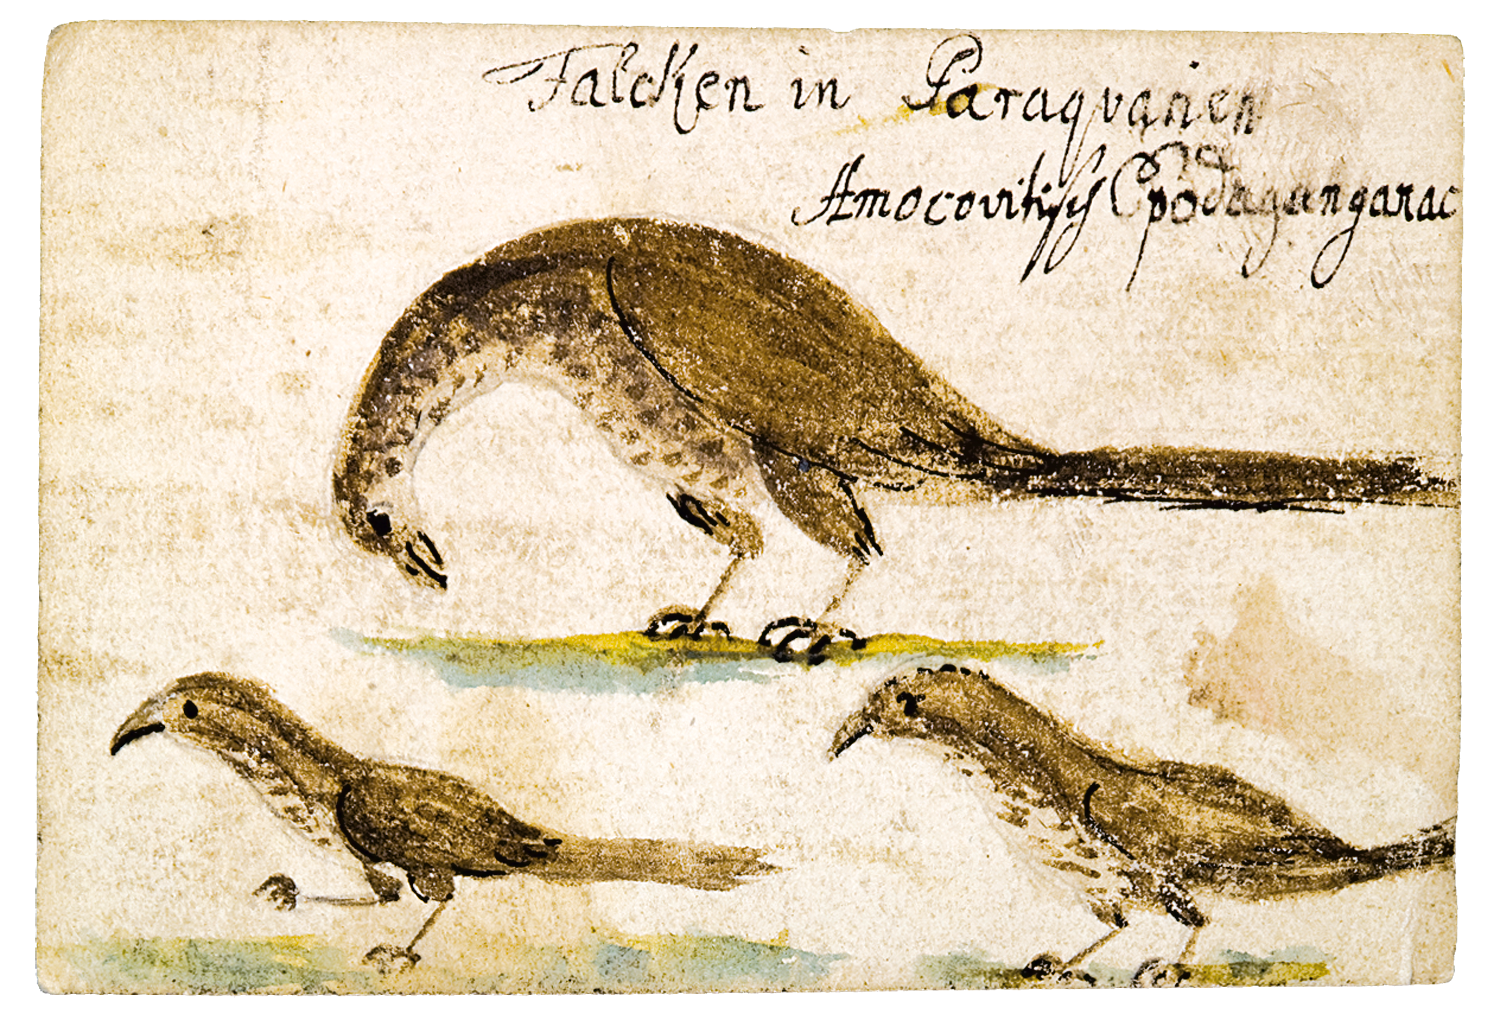 Falcken in Paraquarien
Amocovitisch Epodaganganac